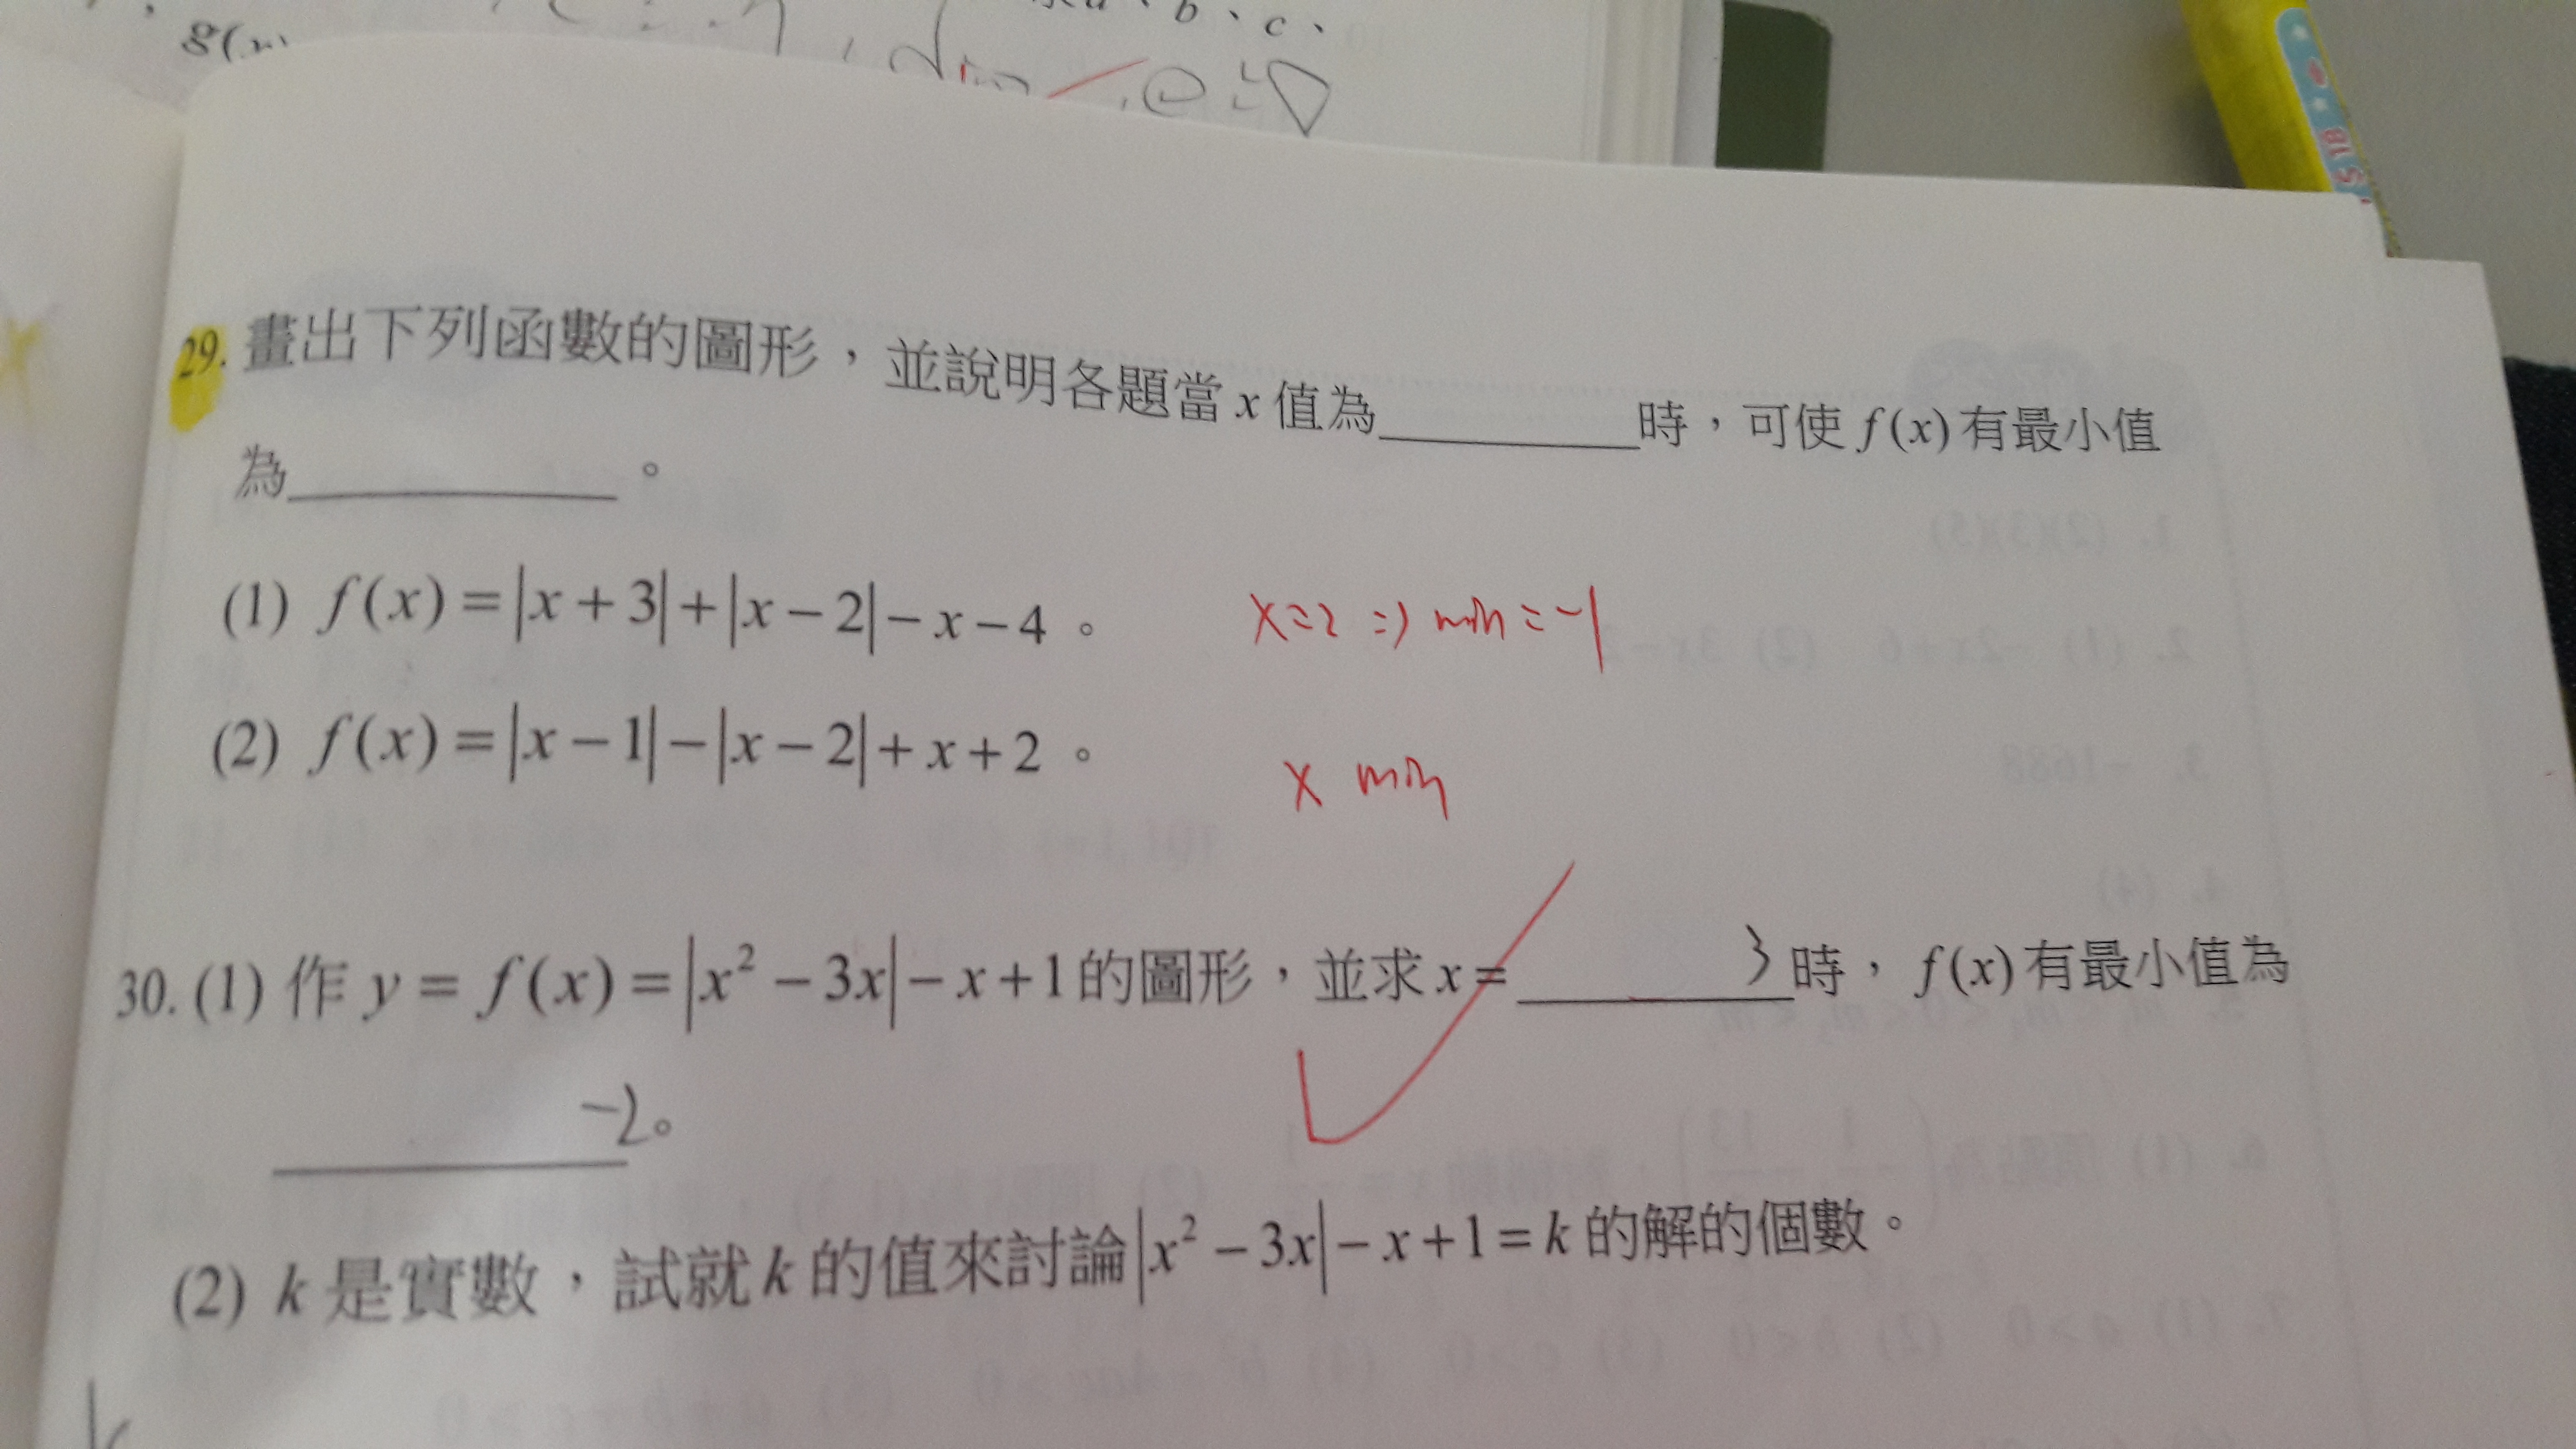 a、b、c、
29. 畫出下列函數的圖形，並說明各題當 x 值為________時，可使 f(x) 有最小值
為__________。
(1) f(x)=|x+3|+|x−2|−x−4。 x=2 => min=-1
(2) f(x)=|x−1|−|x−2|+x+2。 x min
30. (1) 作 y=f(x)=|x²−3x|−x+1 的圖形，並求 x=________3時，f(x) 有最小值為
__________-2。
(2) k 是實數，試就 k 的值來討論 |x²−3x|−x+1=k 的解的個數。